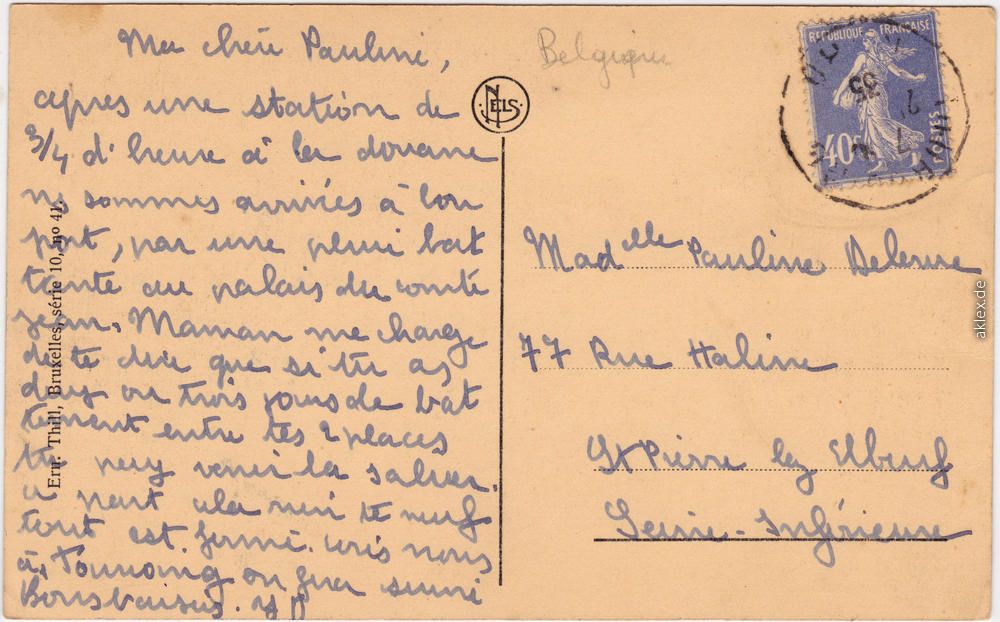 Ma chère Pauline,
après une station de
3/4 d'heure à la douane
ns sommes arrivées à bon
port, par une pluie bat
tante au palais du comté
Jean. Maman me charge
de te dire que si tu as
deux ou trois jours de bat
tement entre tes 2 places
tu peux venir la saluer.
a part cela rien de neuf
tout est fermé. écris nous
à Tourcoing on fera suivre
Bons baisers. y D
Belgique
NELS
Ern. Thill, Bruxelles, série 10, no 41.
REPUBLIQUE FRANÇAISE
40c
POSTES
35
Madelle Pauline Delerue
77 Rue Haline
St Pierre lez Elbeuf
Seine-Inférieure
aklex.de